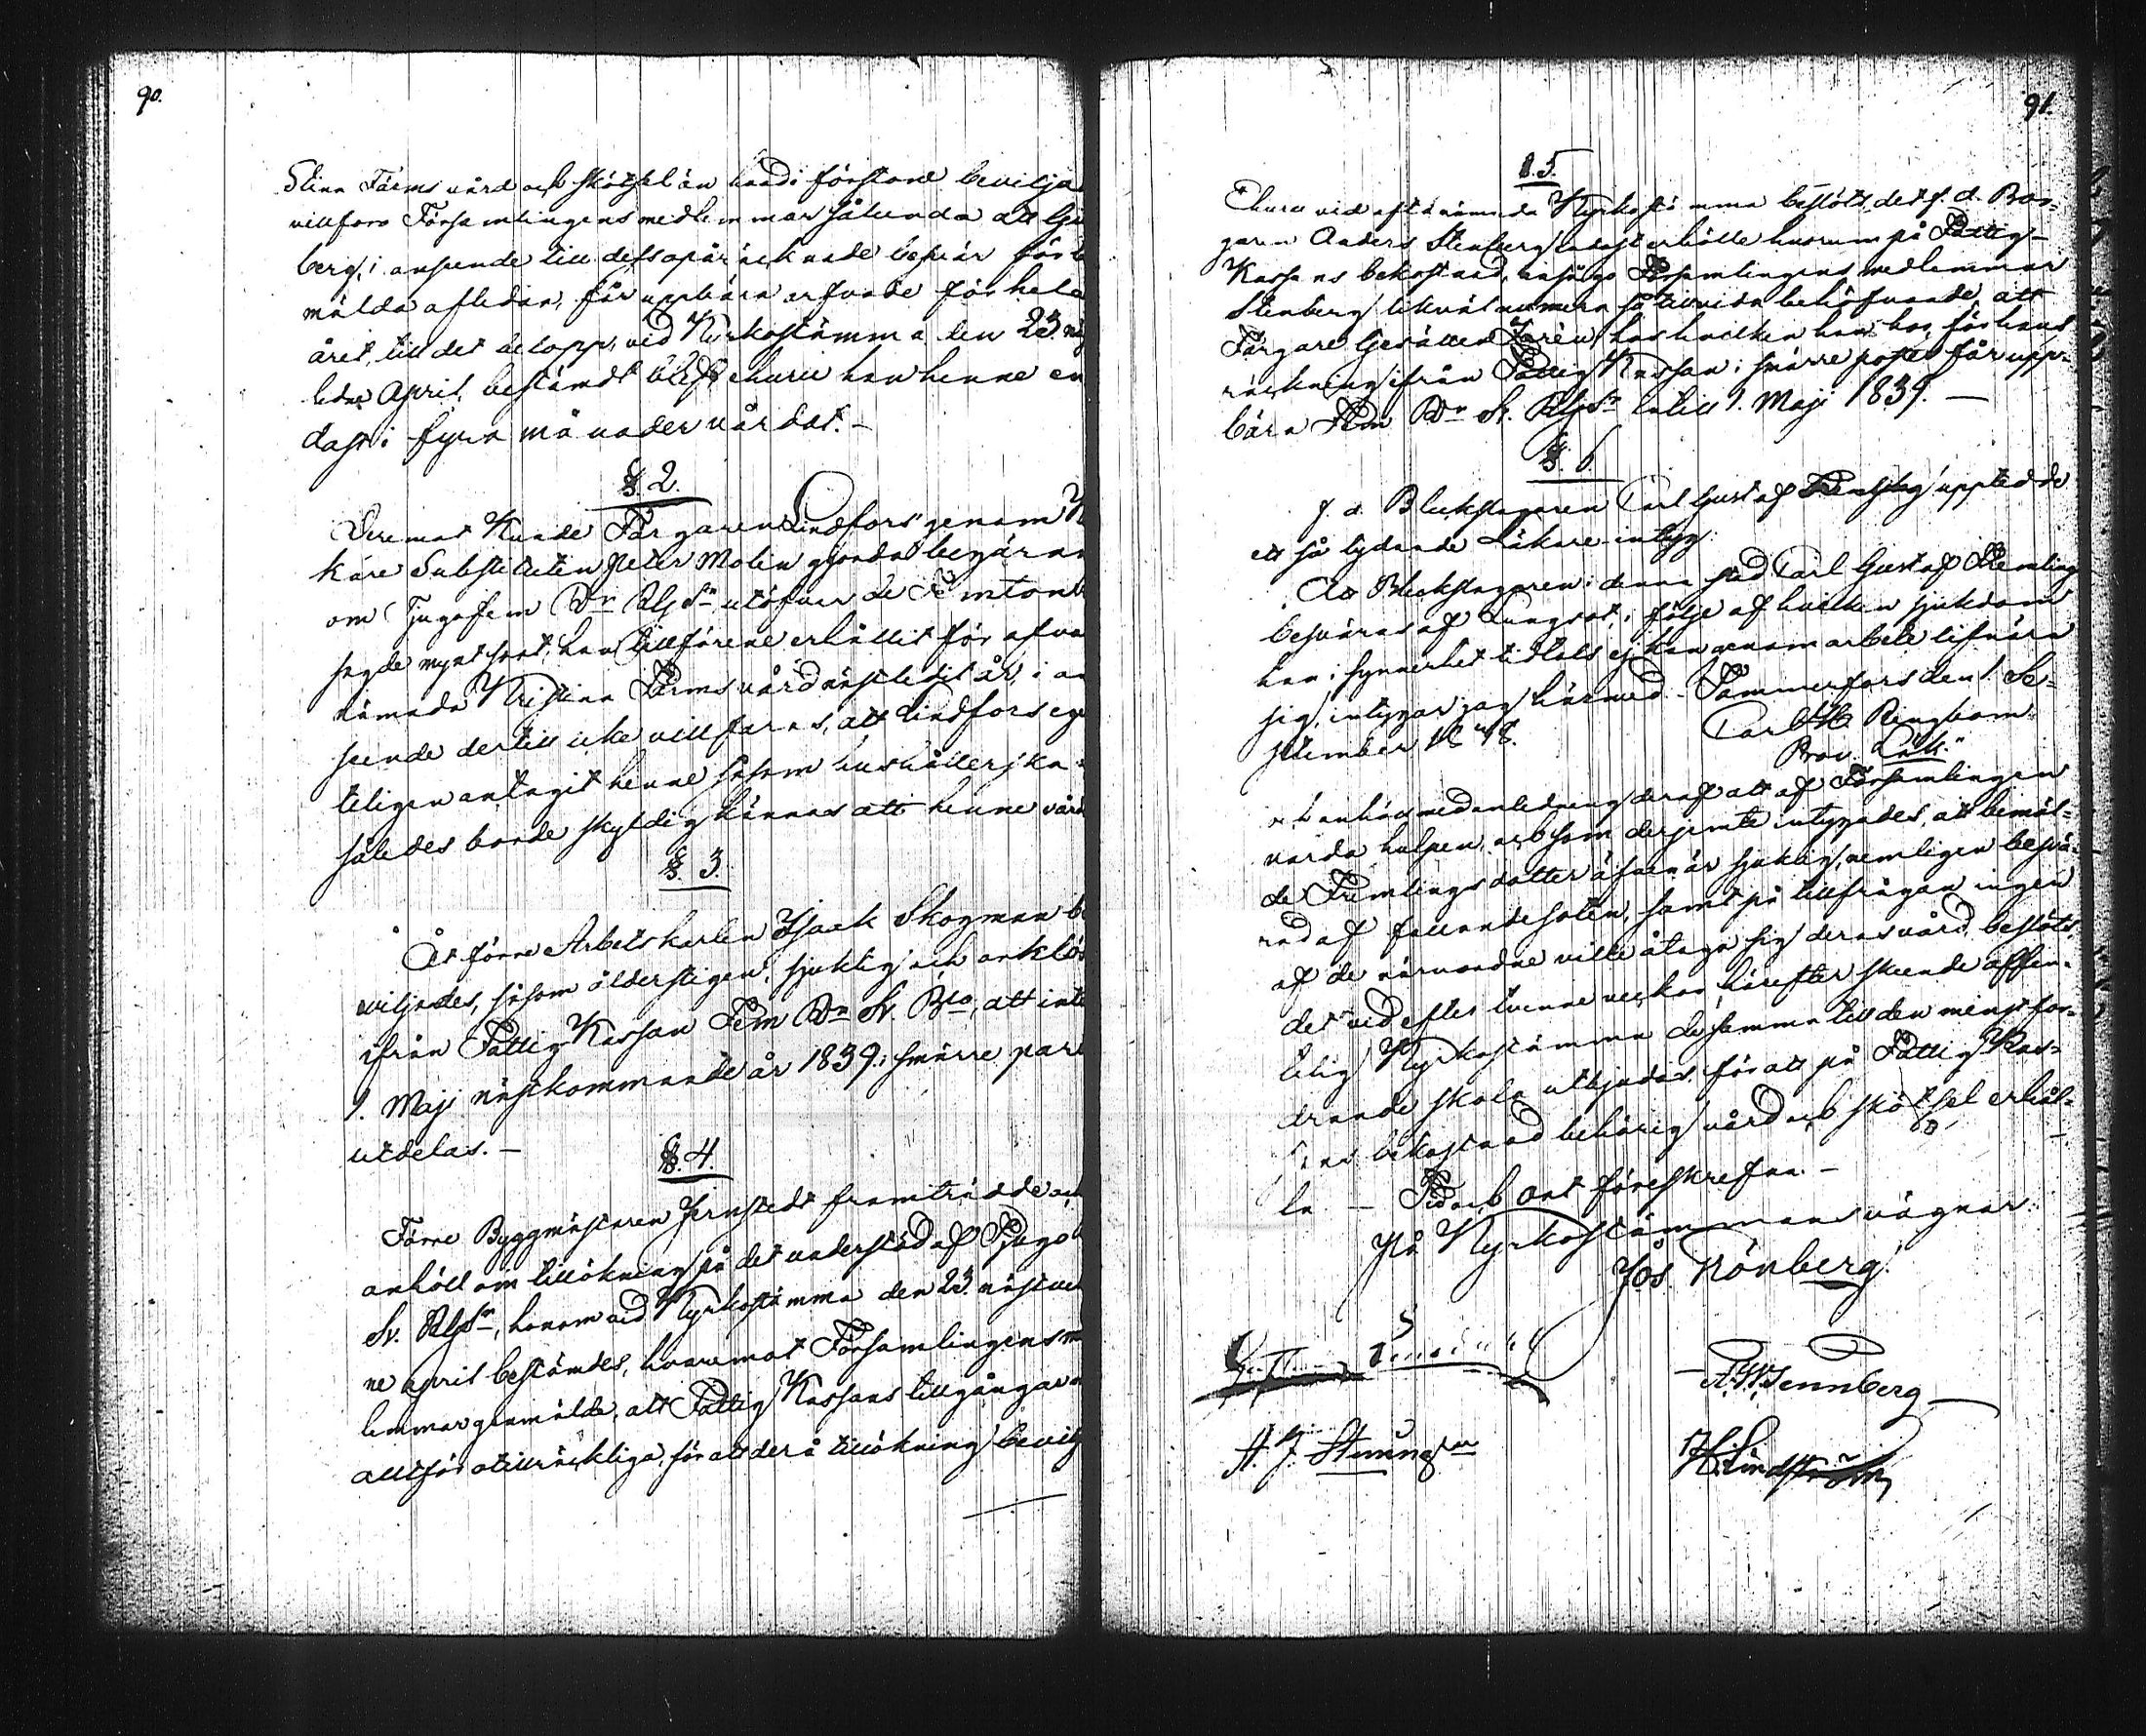 90.
Stina Färms vård och skötsel än hvad i förstone bevilja
villfors Församlingens medlemmar sålunda att
berg, i anseende till dess opåräcknade besvär för
mälda afledna, får uppbära arfvode för hela
året, till det belopp, vid Kyrkostämma den 23.
lidne April, bestämdt blef, ehuru han henne en
dast i fyra månader vårdat. –
§. 2.
Deremot Kunde Färgaren Lindfors' genom
käre Substituten Peter Molin gjorda begäran
om Tjugofem Rdr RgSr utöfver de Femton
sagde myntsort, han tillförene erhållit för
nämnda Kristina Färms vård nästledit år, i an
seende dertill icke villfaras, att Lindfors
teligen antagit henne såsom hushållerska
således borde skyldig kännas att henne vård
§. 3.
Åt förre Arbetskarlen Isaak Skogman be
viljades, såsom ålderstigen, sjuklig och
ifrån Fattig Kassan Fem Rdr Sv. Bco, att
1. Maji nästkommande år 1839 i smärre
utdelas. –
§. 4.
Förre Byggmästaren Jernstedt framträdde och
anhöll om tillökning på det understöd af Tjugo
Sv. RgSr, honom vid Kyrkostämma den 23. nästvek
ne April bestämdes, hvaremot Församlingens med
lemmar genmälde, att Fattig Kassans tillgångar
alltför otillräckliga, för att derå tillökning bevilj
91.
§. 5.
Ehuru vid oftanämnda Kyrkostämma beslöts, det f. d. Bor-
garen Anders Stenberg endast erhålle husrum på Fattig-
Kassans bekostnad, ansågo Församlingens medlemmar
Stenberg likväl numera så tillvida behöfvande, att
Färgare Gesällen hos hvilken han bor, för hans
räckning ifrån Fattig Kassan i smärre poster får upp-
bära Fem Rdr Sv. RgSr intill 1. Maji 1839. –
§. 6.
f. d. Bleckslagaren Carl Gustaf Fremling uppledde
ett så lydande Läkare-intyg:
Att Bleckslagaren i denna stad Carl Gustaf Fremling
besväras af Lungsot, i följe af hvilken sjukdom
han i synnerhet tidtals ej kan genom arbete lifnära
sig, intygar jag härmed. Tammerfors den 1. Se-
ptember 1838.
Carl Ringbom
Prov. Läk."
och anhöll med anledning deraf att af Församlingen
varda hulpen, och som derjemte intygades, att bemäl-
de Fremlings dotter äfven är sjuklig, nemligen besvä-
rad af fallandesoten, samt på tillfrågan ingen
af de närvarande ville åtaga sig deras vård, beslöts,
det vid efter tvenne veckor härefter skeende offen-
telig Kyrkostämma desamma till den minst for-
drande skola utbjudas för att på Fattig Kas-
sans bekostnad behörig vård och skötsel erhål-
la – Tid och ort föreskrefna. –
På Kyrkostämmans vägnar:
Jos Grönberg.
A. W. Wennberg
H. Lindström